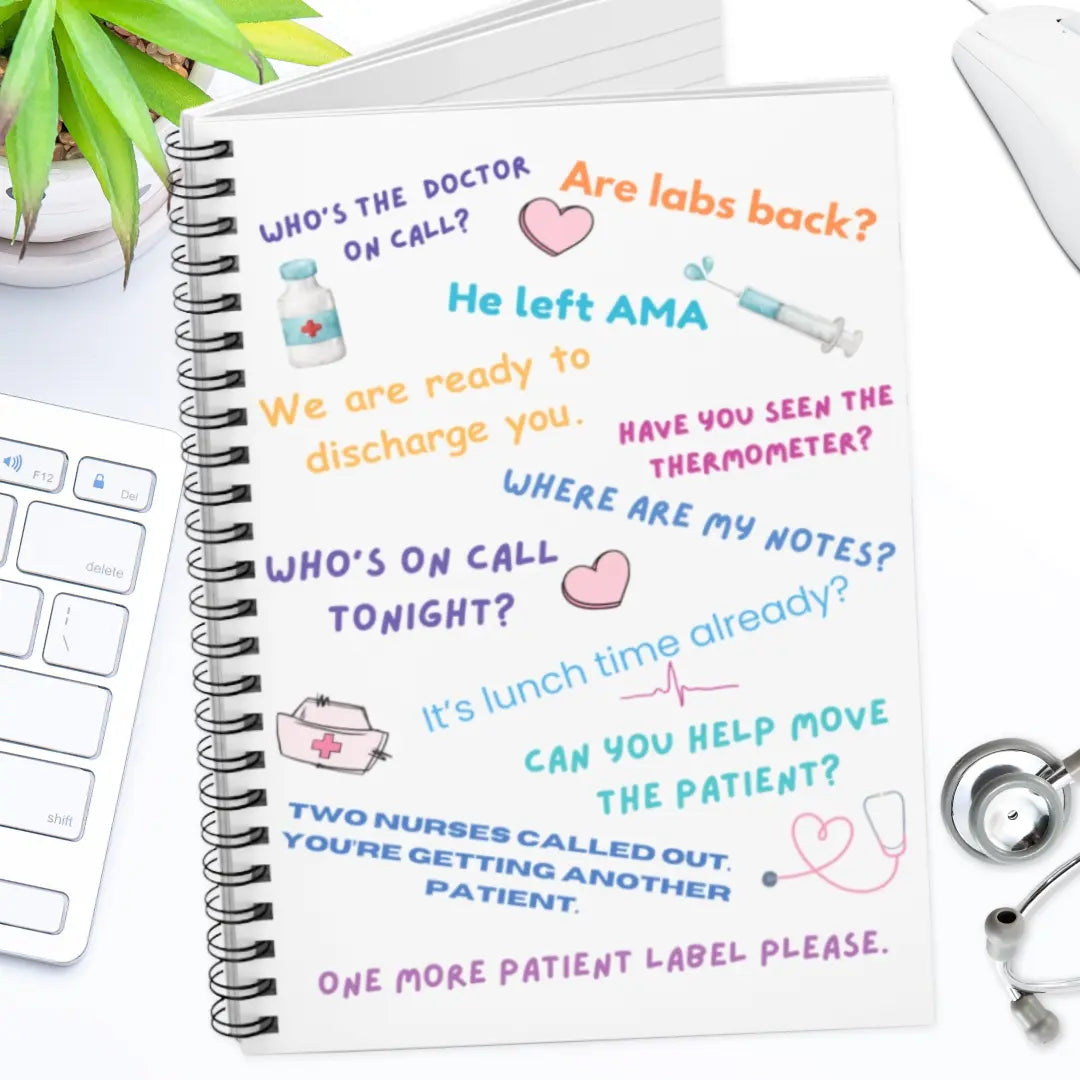 WHO'S THE DOCTOR
ON CALL?
Are labs back?
He left AMA
We are ready to
discharge you.
HAVE YOU SEEN THE
THERMOMETER?
WHERE ARE MY NOTES?
WHO'S ON CALL
TONIGHT?
It's lunch time already?
CAN YOU HELP MOVE
THE PATIENT?
TWO NURSES CALLED OUT.
YOU'RE GETTING ANOTHER
PATIENT.
ONE MORE PATIENT LABEL PLEASE.
F12
Del
delete
shift